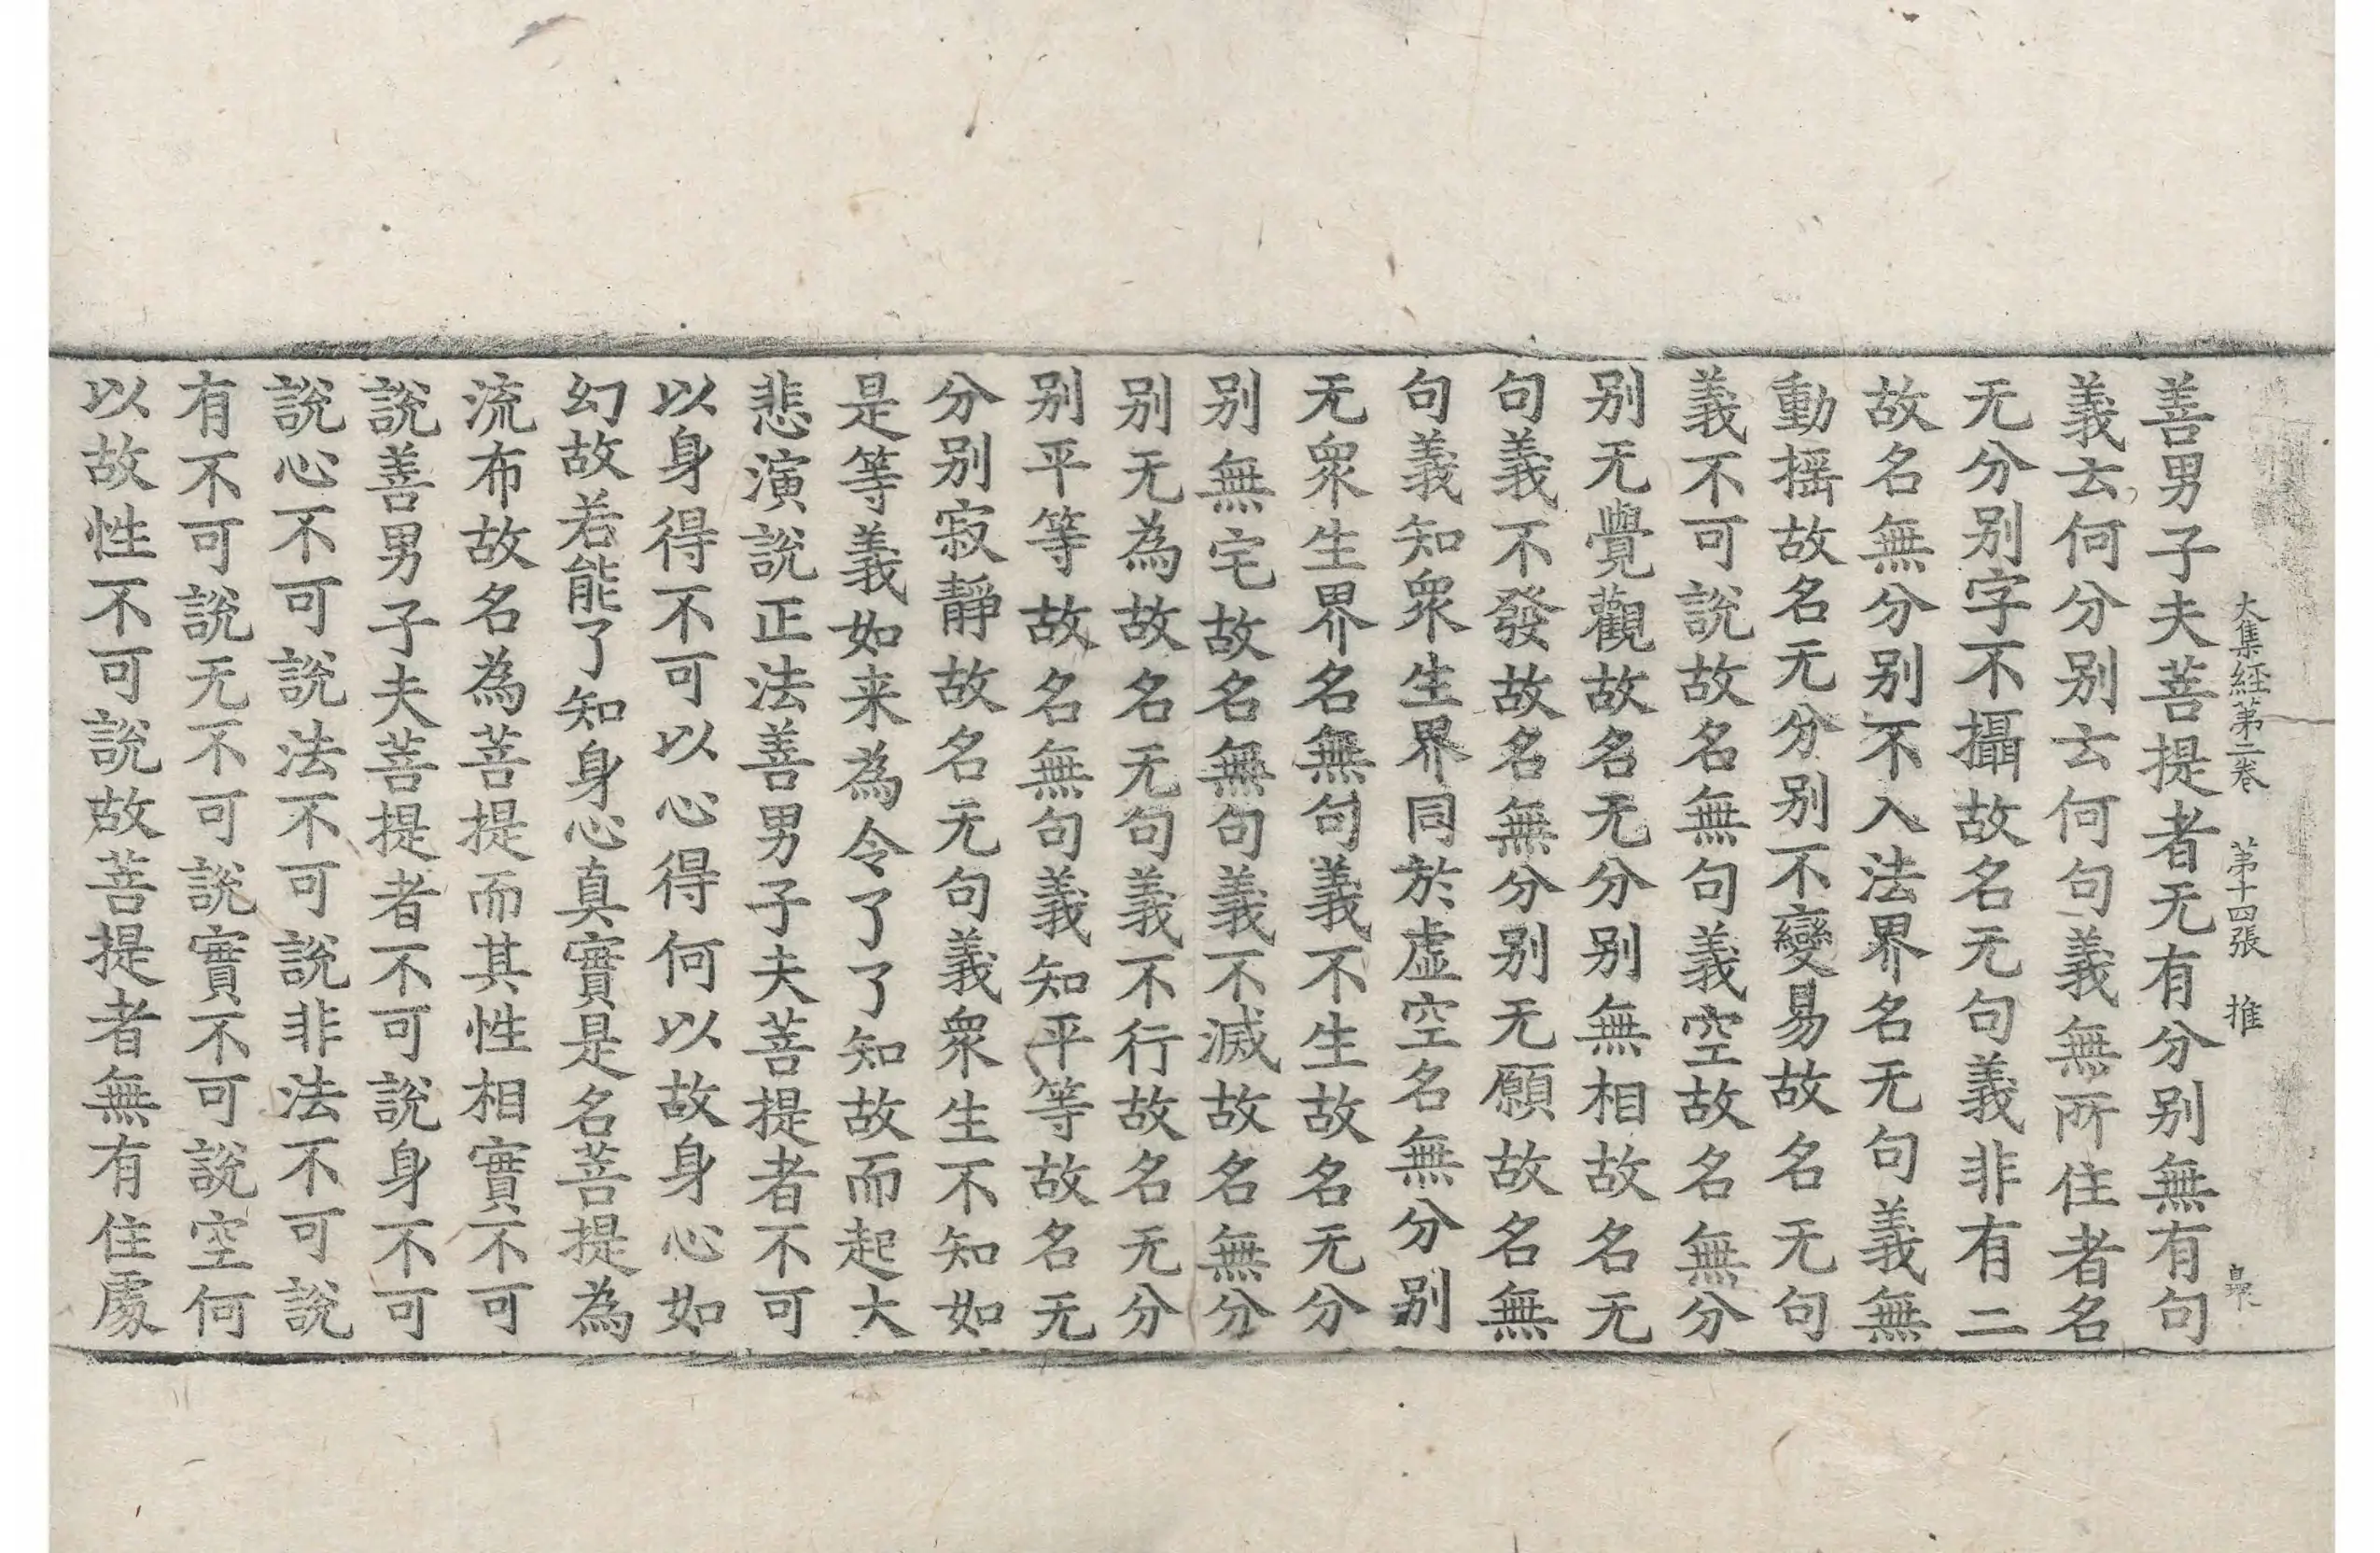 大集経第二巻 第十四張 推
善男子夫菩提者无有分别無有句
義云何分别云何句義無所住者名
无分别字不攝故名无句義非有二
故名無分别不入法界名无句義無
動摇故名无分别不變易故名无句
義不可說故名無句義空故名無分
别无覺觀故名无分别無相故名无
句義不發故名無分别无願故名無
句義知衆生界同於虚空名無分别
无衆生界名無句義不生故名无分
别無宅故名無句義不滅故名無分
别无為故名无句義不行故名无分
别平等故名無句義知平等故名无
分别寂静故名无句義衆生不知如
是等義如来為令了了知故而起大
悲演說正法善男子夫菩提者不可
以身得不可以心得何以故身心如
幻故若能了知身心真實是名菩提為
流布故名為菩提而其性相實不可
說善男子夫菩提者不可說身不可
說心不可說法不可說非法不可說
有不可說无不可說實不可說空何
以故性不可說故菩提者無有住處